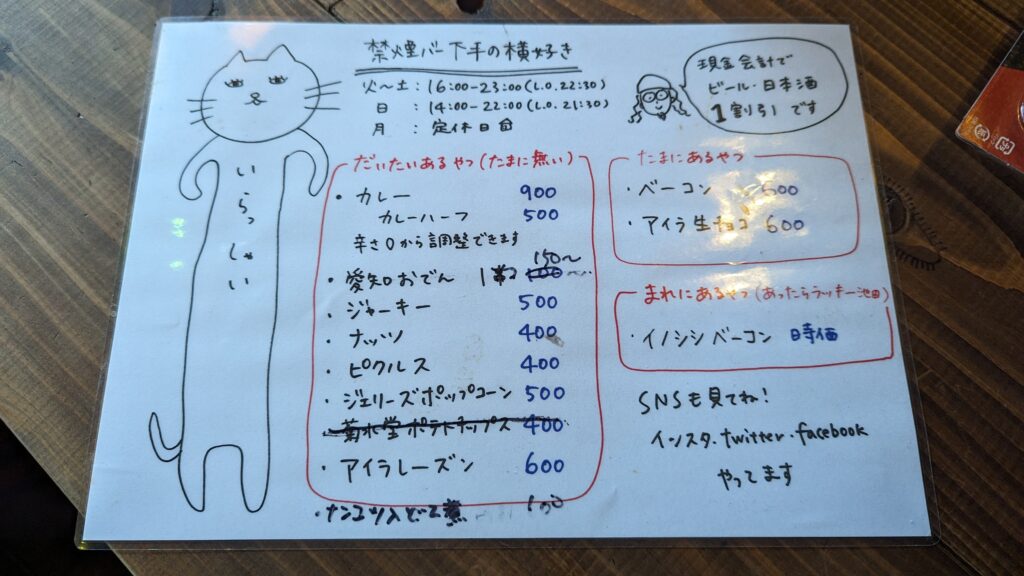 禁煙バー下手の横好き
火〜土：16:00-23:00(L.O.22:30)
日：14:00-22:00(L.O.21:30)
月：定休日
現金会計で
ビール・日本酒
1割引です
いらっしゃい
だいたいあるやつ(たまに無い)
・カレー 900
カレーハーフ 500
辛さ0から調整できます
・愛知おでん 1 150〜
・ジャーキー 500
・ナッツ 400
・ピクルス 400
・ジェリーズポップコーン 500
・菊水堂ポテトチップス 400
・アイラレーズン 600
たまにあるやつ
・ベーコン 600
・アイラ生チョコ 600
まれにあるやつ(あったらラッキー池田)
・イノシシベーコン 時価
SNSも見てね!
インスタ.twitter.facebook
やってます